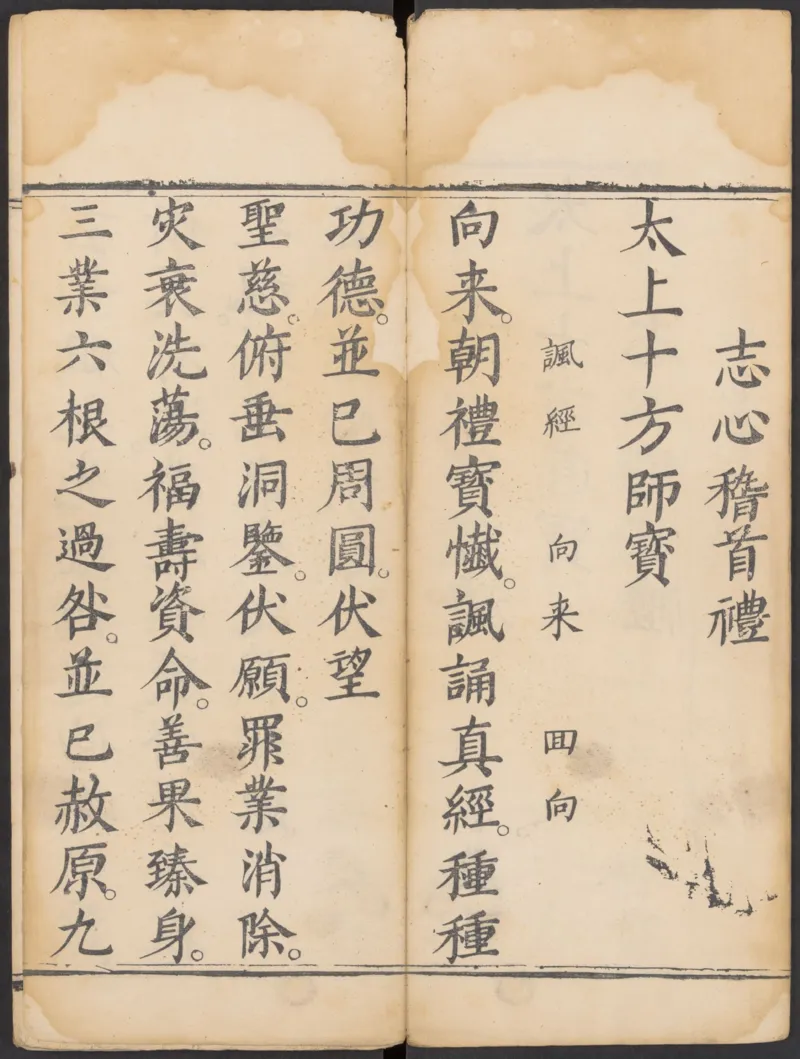 志心稽首禮
太上十方師寶
諷經　向来　回向
向来。朝禮寶懺。諷誦真經。種種
功德。並已周圓。伏望
聖慈。俯垂洞鑒。伏願。罪業消除。
灾衰洗蕩。福壽資命。善果臻身。
三業六根之過咎。並已赦原。九